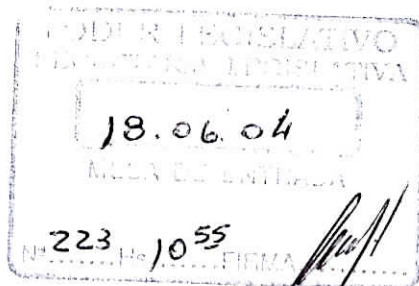 PODER LEGISLATIVO
SECRETARIA LEGISLATIVA
18.06.04
MESA DE ENTRADA
Nº 223 Hs 10⁵⁵ FIRMA